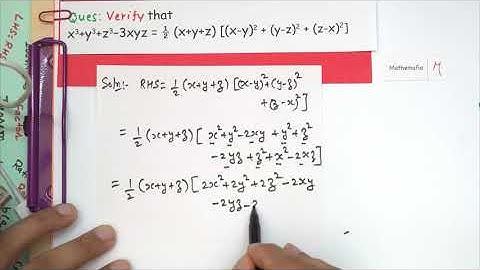 Ques: Verify that
x³+y³+z³–3xyz = ½ (x+y+z) [(x–y)² + (y–z)² + (z–x)²]
Mathemafia M
Soln:- RHS = 1/2 (x+y+z) [(x-y)²+(y-z)²
+(z-x)²]
= 1/2 (x+y+z) [ x²+y²-2xy + y²+z²
-2yz+z²+x²-2zx]
= 1/2 (x+y+z) [ 2x²+2y²+2z²-2xy
-2yz-2